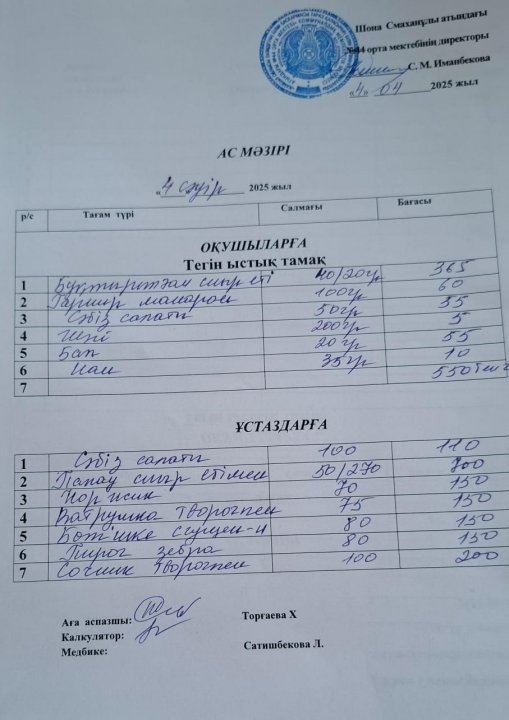 Шона Смаханұлы атындағы
№44 орта мектебінің директоры
С. М. Иманбекова
«4» 04 2025 жыл
АС МӘЗІРІ
«4 сәуір 2025 жыл
р/с Тағам түрі Салмағы Бағасы
ОҚУШЫЛАРҒА
Тегін ыстық тамақ
1 Бұқтырылған сиыр еті 40/20гр 365
2 Гарнир макарон 100гр 60
3 Сәбіз салаты 50гр 35
4 Шәй 200гр 5
5 Бал 20гр 55
6 Нан 35гр 10
7 550тенге
ҰСТАЗДАРҒА
1 Сәбіз салаты 100 110
2 Палау сиыр етімен 50/270 700
3 Коржик 70 150
4 Ватрушка творогпен 75 150
5 80 150
6 Пирог зебра 80 150
7 Сочник творогпен 100 200
Аға аспазшы: Торғаева Х
Калкулятор:
Медбике: Сатишбекова Л.